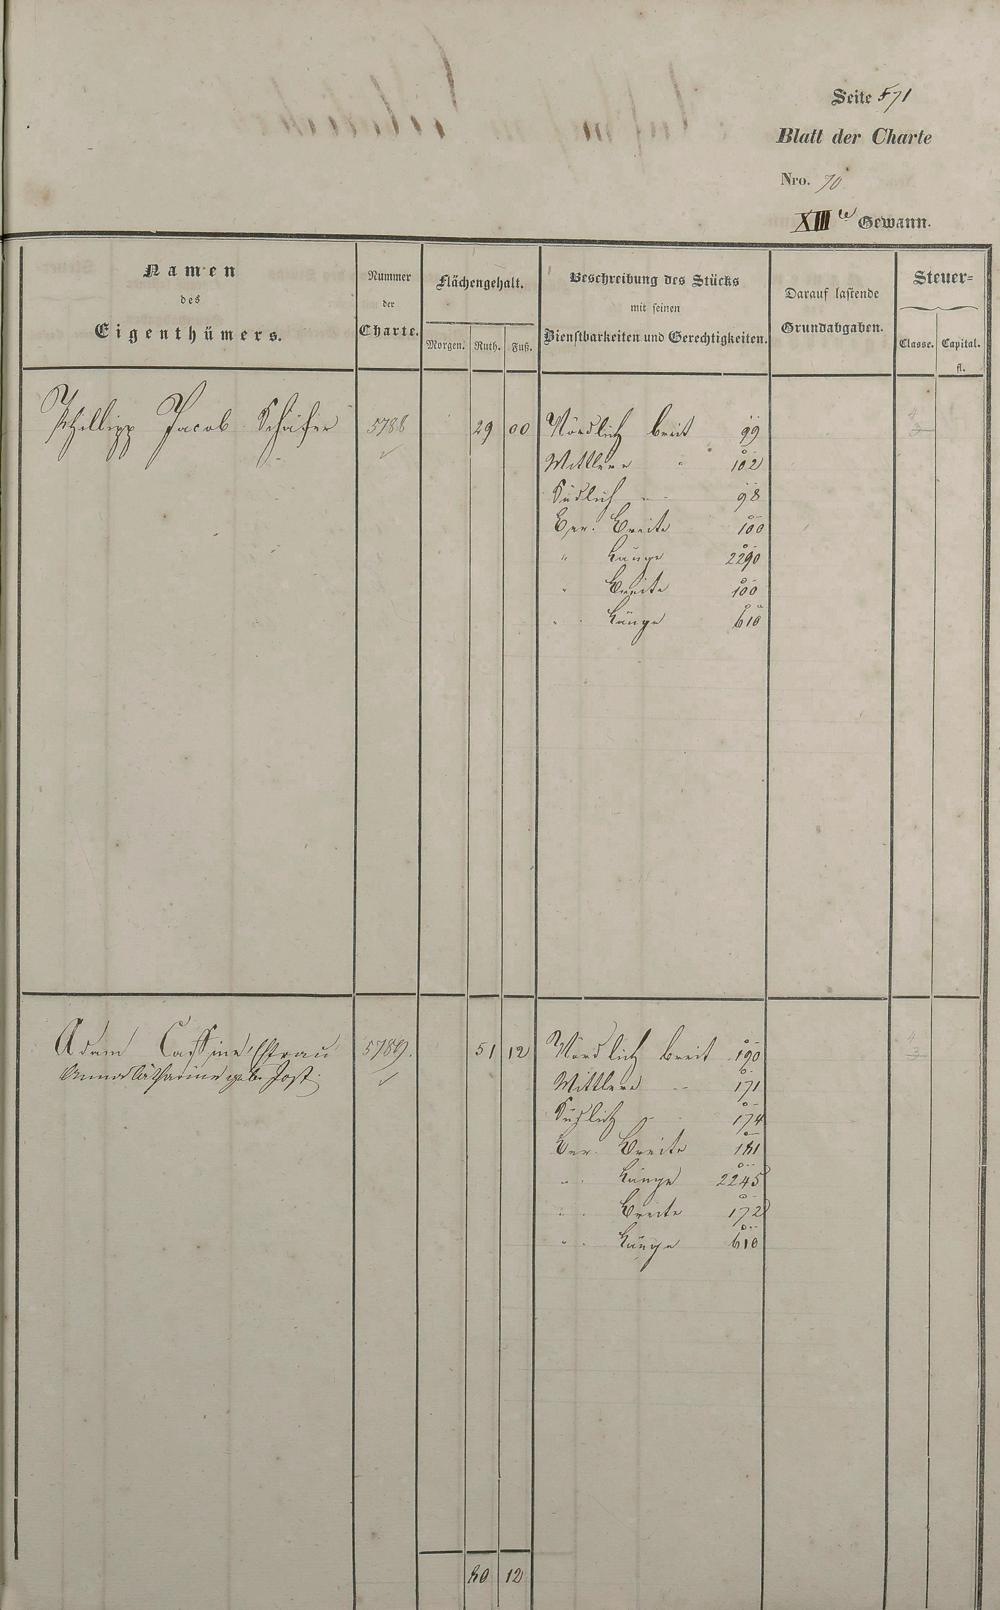 Seite 571
Blatt der Charte
Nro. 70
XIII te Gewann.
Namen des Eigenthümers.
Nummer der Charte.
Flächengehalt.
Morgen. Ruth. Fuß.
Beschreibung des Stücks mit seinen Dienstbarkeiten und Gerechtigkeiten.
Darauf lastende Grundabgaben.
Steuer-
Classe. Capital. fl.
Phillipp Jacob Schäfer 5788 29 00 Nördlich breit 99
Mittlere " 102
Südlich " 98
Ber. Breite 100
" Länge 2290
" Breite 100
" Länge 610
Adam Cassine Ehfrau 5789. 51 12 Nördlich breit 190
Anna Catharine geb. Jost Mittlere " 171
Südlich " 174
Ber. Breite 181
" Länge 2245
" Breite 172
" Länge 610
80 12